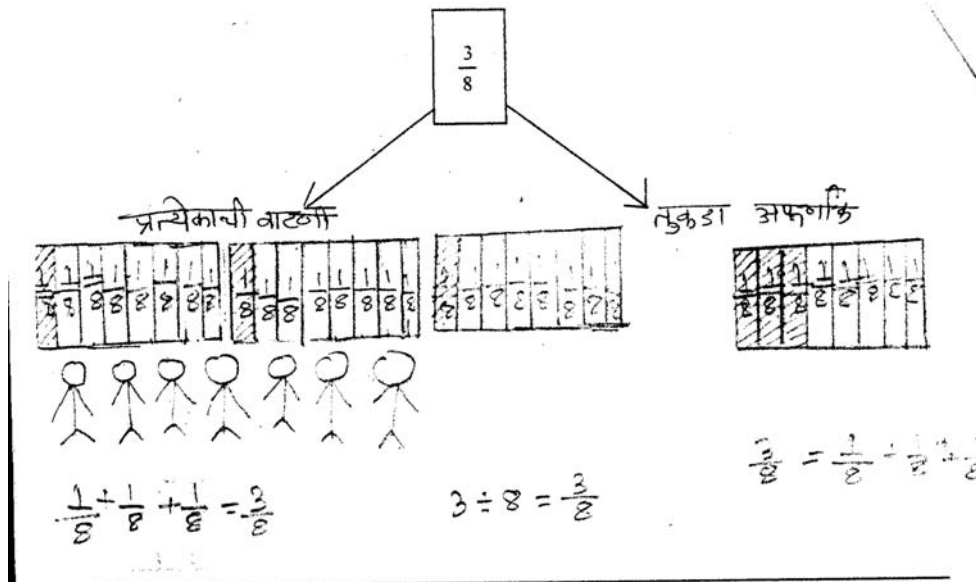 3/8
प्रत्येकाची वाटणी
तुकडा
1/8 1/8 1/8 1/8 1/8 1/8 1/8 1/8
1/8 1/8 1/8 1/8 1/8 1/8 1/8 1/8
1/8 1/8 1/8 1/8 1/8 1/8 1/8 1/8
1/8 1/8 1/8 1/8 1/8 1/8 1/8 1/8
1/8 + 1/8 + 1/8 = 3/8
3 ÷ 8 = 3/8
3/8 = 1/8 + 1/8 + 1/8